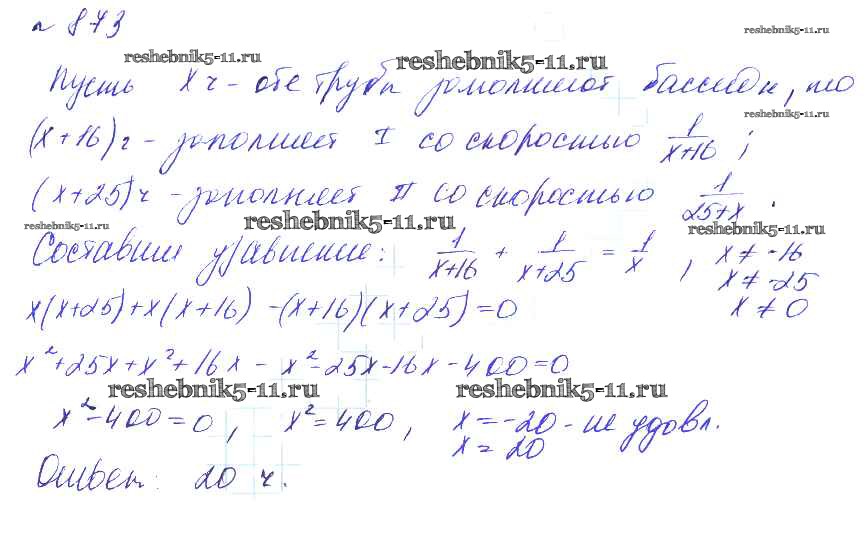 № 873
reshebnik5-11.ru
reshebnik5-11.ru
reshebnik5-11.ru
Пусть x ч - обе трубы заполняют бассейн, то
reshebnik5-11.ru
(x+16) ч - заполняет I со скоростью 1/(x+16) ;
(x+25) ч - заполняет II со скоростью 1/(25+x) .
reshebnik5-11.ru
reshebnik5-11.ru
reshebnik5-11.ru
Составим уравнение: 1/(x+16) + 1/(x+25) = 1/x , x ≠ -16
x ≠ -25
x ≠ 0
x(x+25)+x(x+16) -(x+16)(x+25)=0
x²+25x+x²+16x - x²-25x-16x-400=0
reshebnik5-11.ru
reshebnik5-11.ru
x²-400=0, x²=400, x=-20 - не удовл.
x=20
Ответ: 20 ч.